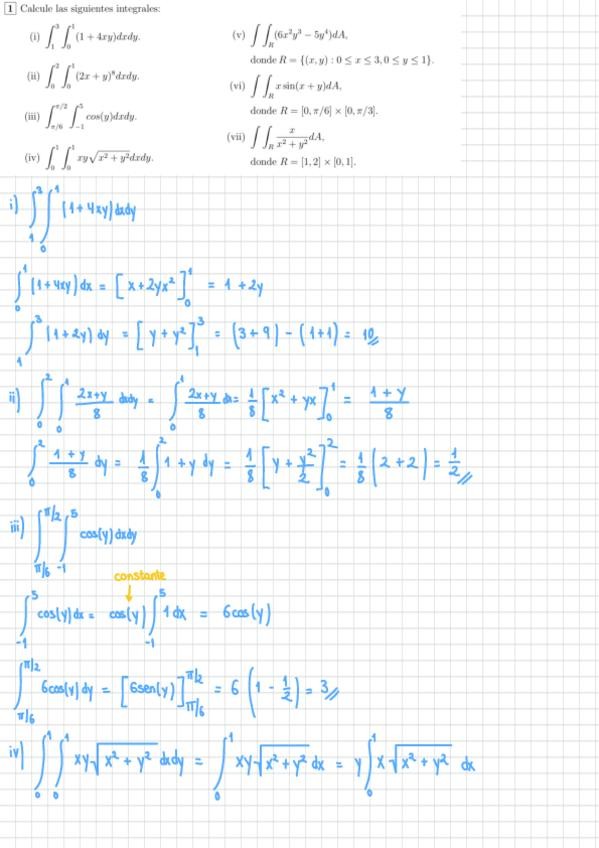 1 Calcule las siguientes integrales:
(i) ∫₁³ ∫₀¹ (1 + 4xy)dxdy.
(ii) ∫₀² ∫₀¹ (2x + y)⁸dxdy.
(iii) ∫_{π/6}^{π/2} ∫₋₁⁵ cos(y)dxdy.
(iv) ∫₀¹ ∫₀¹ xy√(x² + y²)dxdy.
(v) ∫∫_R (6x²y³ − 5y⁴)dA,
donde R = {(x, y) : 0 ≤ x ≤ 3, 0 ≤ y ≤ 1}.
(vi) ∫∫_R x sin(x + y)dA,
donde R = [0, π/6] × [0, π/3].
(vii) ∫∫_R x/(x² + y²) dA,
donde R = [1, 2] × [0, 1].
i) ∫₁³ ∫₀¹ (1+4xy) dxdy
∫₀¹ (1+4xy) dx = [x+2yx²]₀¹ = 1+2y
∫₁³ (1+2y) dy = [y+y²]₁³ = (3+9) − (1+1) = 10
ii) ∫₀² ∫₀¹ (2x+y)/8 dxdy = ∫₀¹ (2x+y)/8 dx = 1/8 [x² + yx]₀¹ = (1+y)/8
∫₀² (1+y)/8 dy = 1/8 ∫₀² 1+y dy = 1/8 [y + y²/2]₀² = 1/8 (2+2) = 1/2
iii) ∫_{π/6}^{π/2} ∫₋₁⁵ cos(y) dxdy
constante
∫₋₁⁵ cos(y) dx = cos(y) ∫₋₁⁵ 1 dx = 6cos(y)
∫_{π/6}^{π/2} 6cos(y) dy = [6sen(y)]_{π/6}^{π/2} = 6 (1 − 1/2) = 3
iv) ∫₀¹ ∫₀¹ xy√(x² + y²) dxdy = ∫₀¹ xy√(x² + y²) dx = y ∫₀¹ x√(x² + y²) dx